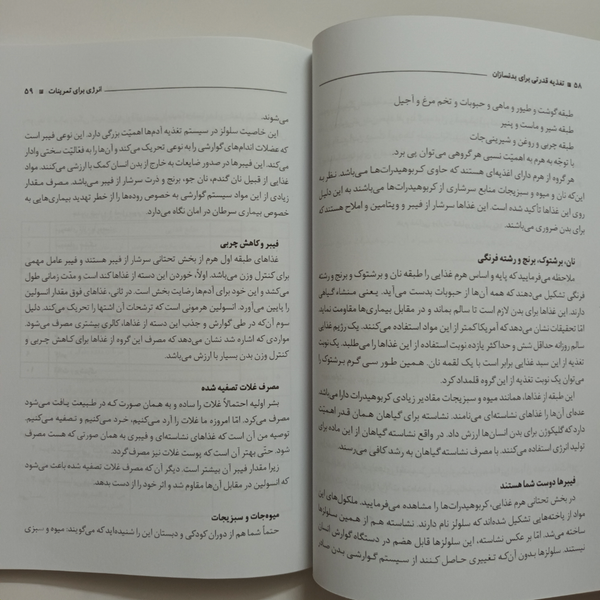 ۵۸ ■ تغذیه قدرتی برای بدنسازان
طبقه گوشت و طیور و ماهی و حبوبات و تخم مرغ و آجیل
طبقه شیر و ماست و پنیر
طبقه چربی و روغن و شیرینی‌جات
با توجّه به هرم به اهمیّت نسبی هر گروهی می‌توان پی برد.
هر گروه از هرم دارای اغذیه‌ای هستند که حاوی کربوهیدرات‌ها می‌باشد. نظر به
این‌که نان و میوه و سبزیجات منابع سرشاری از کربوهیدرات‌ها می‌باشند به این دلیل
روی این غذاها تأکید شده است. این غذاها سرشار از فیبر و ویتامین و املاح هستند که
برای بدن ضروری می‌باشند.
نان، برشتوک، برنج و رشته فرنگی
ملاحظه می‌فرمایید که پایه و اساس هرم غذایی را طبقه نان و برشتوک و برنج و رشته
فرنگی تشکیل می‌دهند که همه آن‌ها از حبوبات بدست می‌آید. یعنی منشاء گیاهی
دارند. این غذاها برای بدن لازم است تا سالم بماند و در مقابل بیماری‌ها مقاومت نماید
امّا تحقیقات نشان می‌دهد که آمریکا کمتر از این مواد استفاده می‌کنند. یک رژیم غذایی
سالم روزانه حداقل شش و حداکثر یازده نوبت استفاده از این غذاها را می‌طلبد. یک نوبت
تغذیه از این سبد غذایی برابر است با یک لقمه نان. همین طور سی گرم برشتوک را
می‌توان یک نوبت تغذیه از این گروه قلمداد کرد.
این طبقه از غذاها، همانند میوه و سبزیجات مقادیر زیادی کربوهیدرات دارا می‌باشد
عدّه‌ای آن‌ها را غذاهای نشاسته‌ای می‌نامند. نشاسته برای گیاهان همان قدر اهمیّت
دارد که گلیکوژن برای بدن انسان‌ها ارزش داد. در واقع گیاهان از این ماده برای
تولید انرژی استفاده می‌کنند. با مصرف نشاسته گیاهان به رشد کافی می‌رسند.
فیبرها دوست شما هستند
در بخش تحتانی هرم غذایی، کربوهیدرات‌ها را مشاهده می‌فرمایید. ملکول‌های این
مواد از یاخته‌هایی تشکیل شده‌اند که سلولز نام دارند. نشاسته هم از همین سلولزها
ساخته می‌شد. امّا بر عکس نشاسته، این سلولزها قابل هضم در دستگاه گوارش انسان
نیستند. سلولزها بدون آن‌که تغییری حاصل کنند از سیستم گوارشی بدن صادر
انرژی برای تمرینات ■ ۵۹
می‌شوند.
این خاصیت سلولز در سیستم تغذیه آدم‌ها اهمیّت بزرگی دارد. این نوعی فیبر است
که عضلات اندام‌های گوارشی را به نوعی تحریک می‌کند و آن‌ها را به فعّالیّت سختی وادار
می‌کند. این فیبرها در صدور ضایعات به خارج از بدن انسان کمک با ارزشی می‌کنند. مواد
غذایی از قبیل نان گندم، نان جو، برنج و ذرت سرشار از فیبر می‌باشد. مصرف مقدار
زیادی از این مواد سیستم گوارشی به خصوص روده‌ها را از خطر تهدید بیماری‌هایی به
خصوص بیماری سرطان در امان نگاه می‌دارد.
فیبر و کاهش چربی
غذاهای طبقه اول هرم از بخش تحتانی سرشار از فیبر هستند و فیبر عامل مهمی
برای کنترل وزن می‌باشد. اولاً، خوردن این دسته از غذاها کند است و مدّت زمانی طول
می‌کشد و این خود برای آدم‌ها رضایت بخش است. در ثانی، غذاهای فوق مقدار انسولین
را پایین می‌آورد. انسولین هرمونی است که ترشحات آن اشتها را تحریک می‌کند. دلیل
سوم آن‌که در طی گوارش و جذب این دسته از غذاها، کالری بیشتری مصرف می‌شود.
مواردی که اشاره شد نشان می‌دهد که مصرف این گروه از غذاها برای کاهش چربی و
کنترل وزن بدن بسیار با ارزش می‌باشد.
مصرف غلات تصفیه شده
بشر اولیه احتمالاً غلات را ساده و به همان صورت که در طبیعت یافت می‌شود
مصرف می‌کرد. امّا امروزه ما غلات را آرد می‌کنیم، خرد می‌کنیم و تصفیه می‌کنیم.
توصیه من آن است که غذاهای نشاسته‌ای و فیبری به همان صورتی که هست مصرف
شود. حتّی بهتر آن است که پوست غلات نیز مصرف گردد.
زیرا مقدار فیبر آن بیشتر است. دیگر آن که مصرف غلات تصفیه شده باعث می‌شود
که انسولین در مقابل آن‌ها مقاوم شد و اثر خود را از دست بدهد.
میوه‌جات و سبزیجات
حتماً شما هم از دوران کودکی و دبستان این را شنیده‌اید که می‌گویند: میوه و سبزی